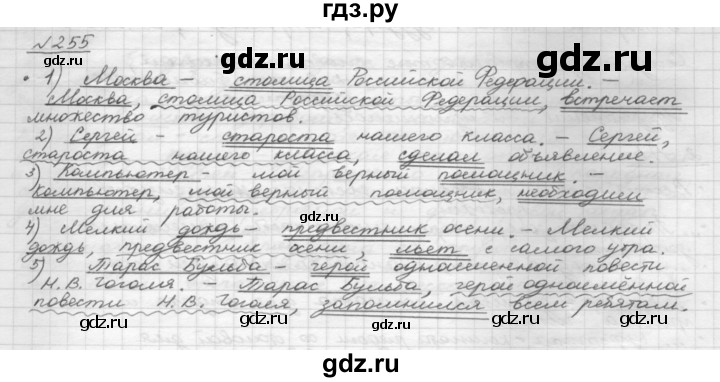 гдз.ру
№255
1) Москва – столица Российской Федерации. –
Москва, столица Российской Федерации, встречает
множество туристов.
2) Сергей – староста нашего класса. – Сергей,
староста нашего класса, сделал объявление.
3) Компьютер – мой верный помощник. –
Компьютер, мой верный помощник, необходим
мне для работы.
4) Мелкий дождь – предвестник осени. – Мелкий
дождь, предвестник осени, льёт с самого утра.
5) Тарас Бульба – герой одноимённой повести
Н.В. Гоголя. – Тарас Бульба, герой одноимённой
повести Н.В. Гоголя, запомнился всем ребятам.
gdz.ru gdz.ru
gdz.ru gdz.ru gdz.ru
gdz.ru gdz.ru
gdz.ru gdz.ru gdz.ru
gdz.ru gdz.ru
gdz.ru